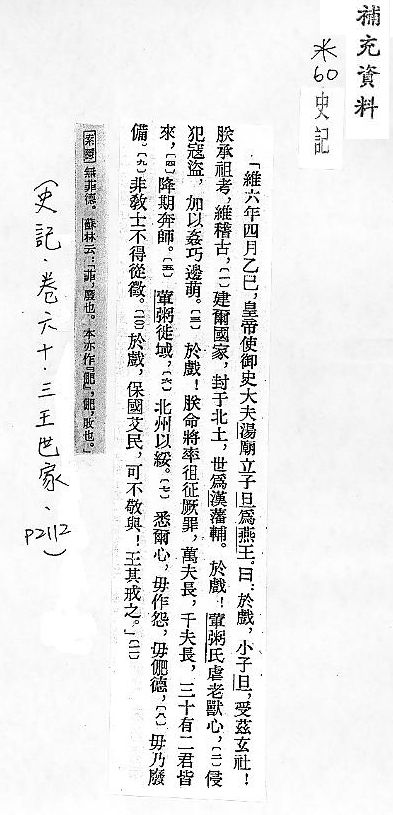 補充資料
※60史記
「維六年四月乙巳，皇帝使御史大夫湯廟立子旦爲燕王。曰：於戲，小子旦，受茲玄社！
朕承祖考，維稽古，〔一〕建爾國家，封于北土，世爲漢藩輔。於戲！葷粥氏虐老獸心，〔二〕侵
犯寇盜，加以姦巧邊萌。〔三〕於戲！朕命將率徂征厥罪，萬夫長，千夫長，三十有二君皆
來，〔四〕降期奔師。〔五〕葷粥徙域，〔六〕北州以綏。〔七〕悉爾心，毋作怨，毋俷德，〔八〕毋乃廢
備。〔九〕非教士不得從徵。〔一0〕於戲，保國艾民，可不敬與！王其戒之。」〔一一〕
索隱無菲德。蘇林云：「菲，廢也。本亦作『俷』，俷，敗也。」
（史記．卷六十．三王世家．P2112）